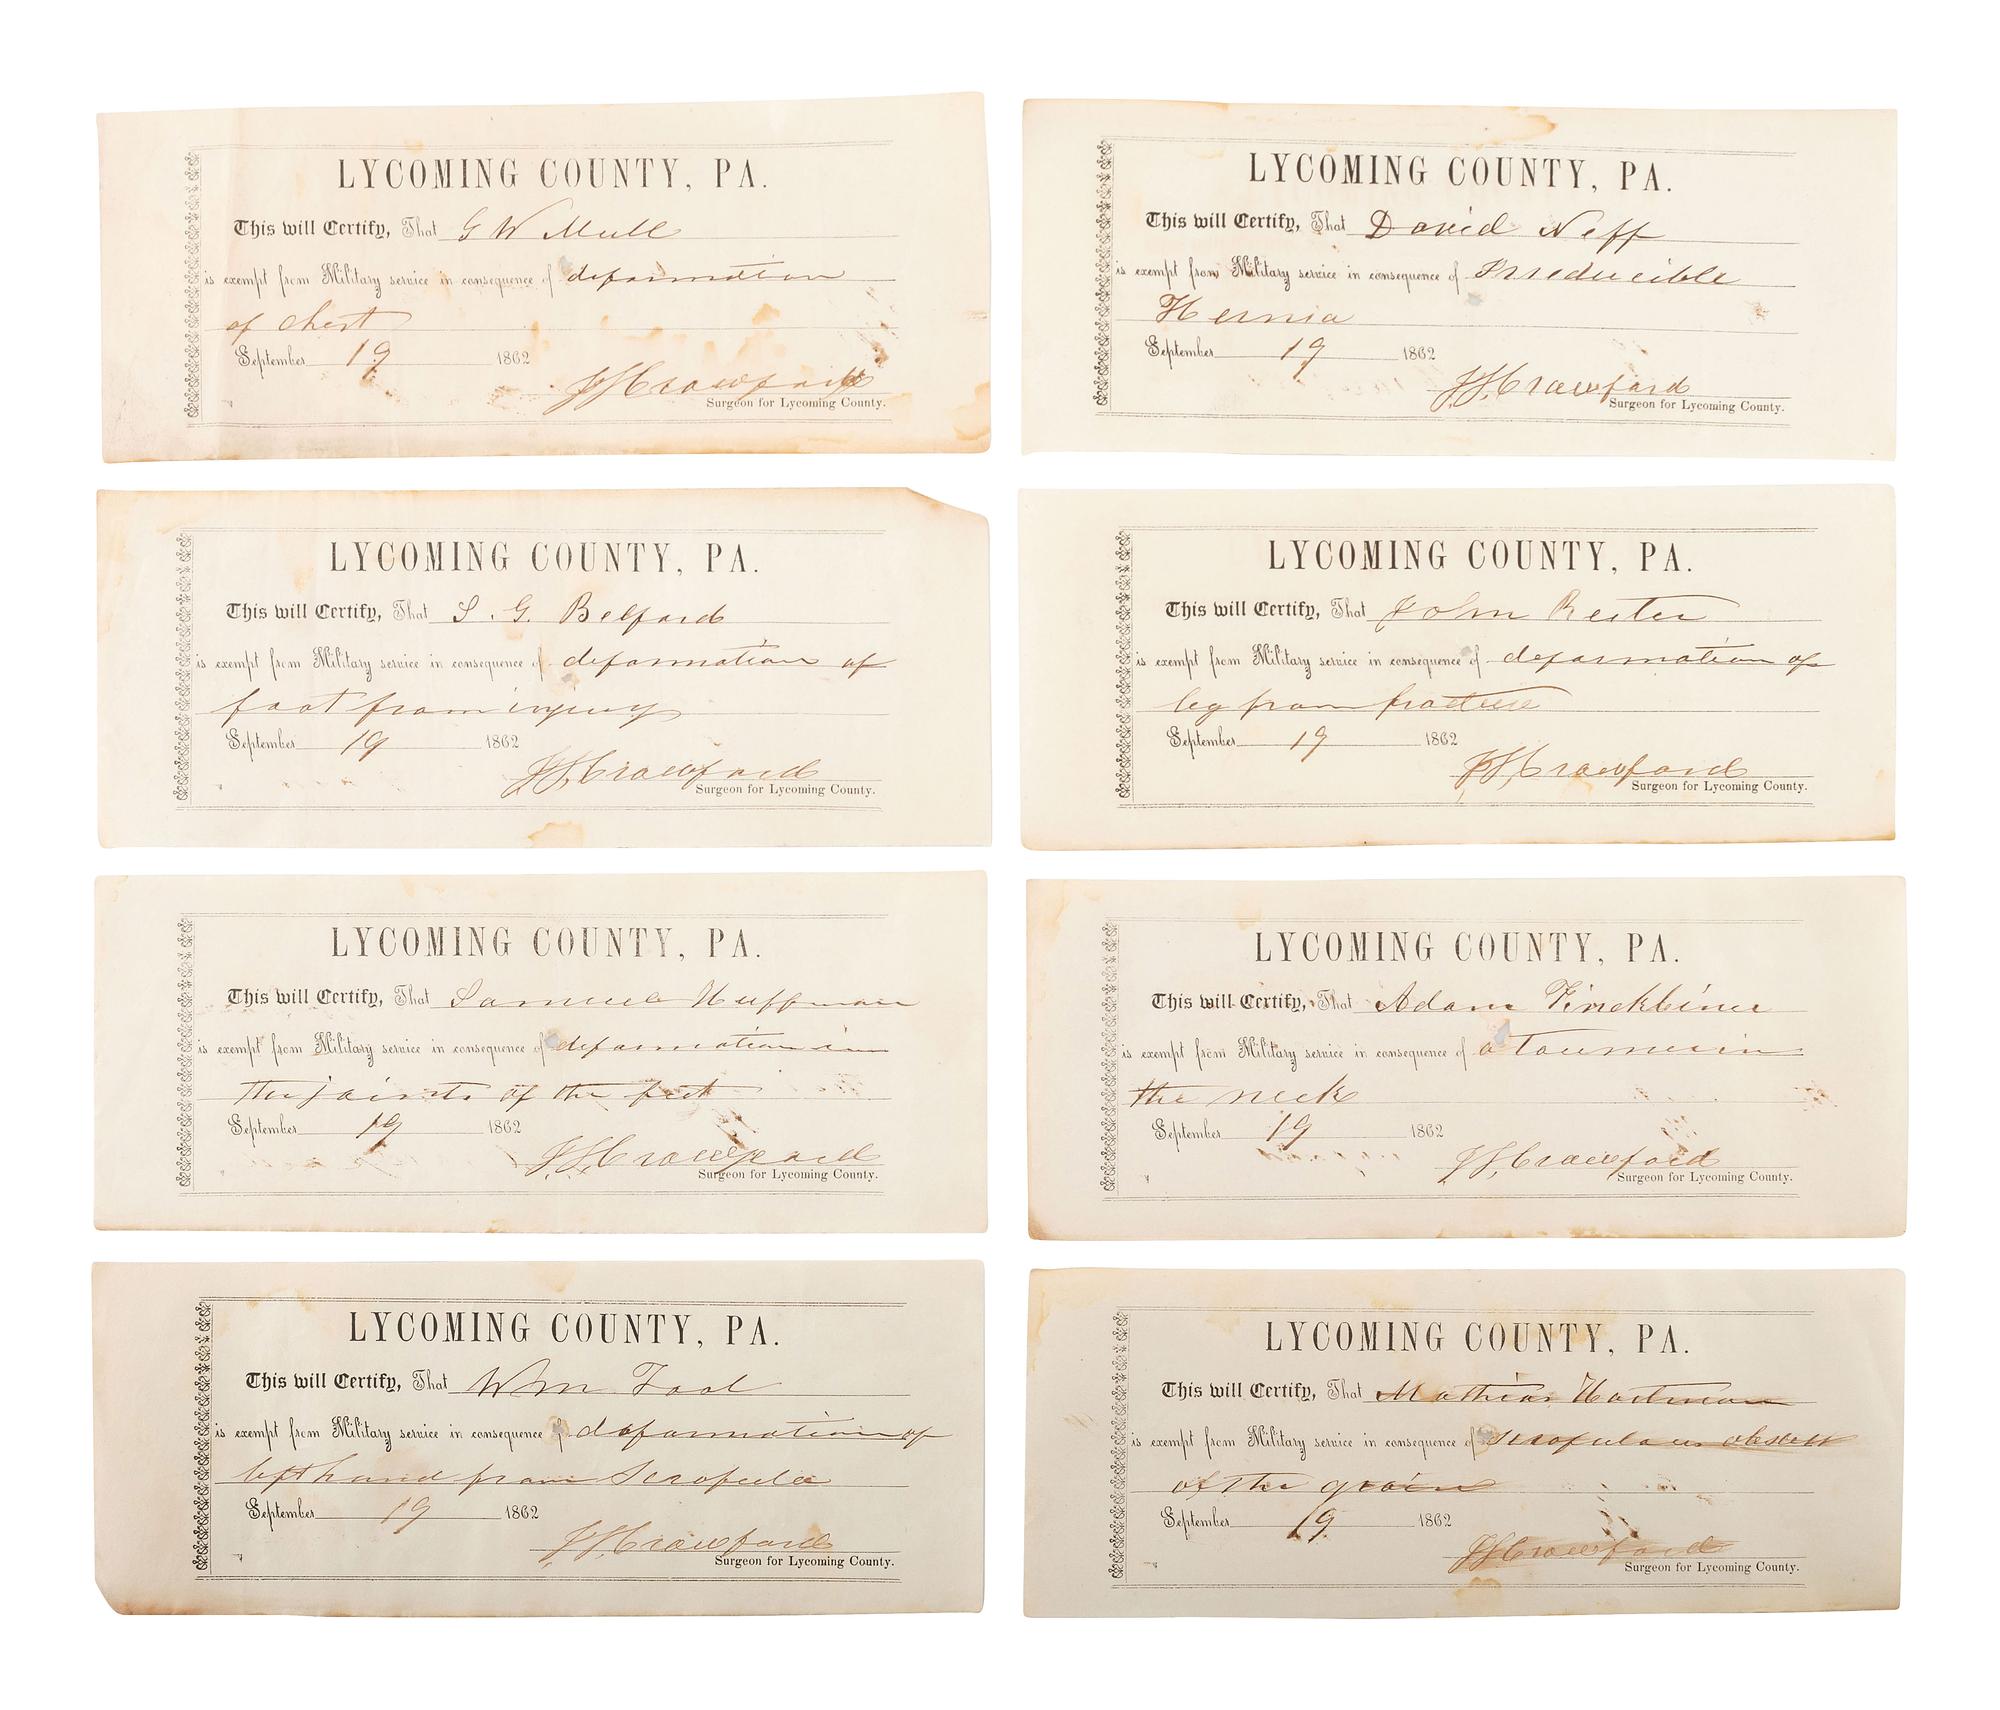 LYCOMING COUNTY, PA.
This will Certify, That G W Mull
is exempt from Military service in consequence of deformation
of chest
September 19 1862
J S Crawford
Surgeon for Lycoming County.
LYCOMING COUNTY, PA.
This will Certify, That David Neff
is exempt from Military service in consequence of Irreducible
Hernia
September 19 1862
J S Crawford
Surgeon for Lycoming County.
LYCOMING COUNTY, PA.
This will Certify, That S. G. Belford
is exempt from Military service in consequence of deformation of
foot from injury
September 19 1862
J S Crawford
Surgeon for Lycoming County.
LYCOMING COUNTY, PA.
This will Certify, That John Rester
is exempt from Military service in consequence of deformation of
leg from fracture
September 19 1862
J S Crawford
Surgeon for Lycoming County.
LYCOMING COUNTY, PA.
This will Certify, That Samuel Huffman
is exempt from Military service in consequence of deformation in
the joints of the feet
September 19 1862
J S Crawford
Surgeon for Lycoming County.
LYCOMING COUNTY, PA.
This will Certify, That Adam Finckbiner
is exempt from Military service in consequence of a Toumer in
the neck
September 19 1862
J S Crawford
Surgeon for Lycoming County.
LYCOMING COUNTY, PA.
This will Certify, That Wm Fool
is exempt from Military service in consequence of deformation of
left hand from Scrofula
September 19 1862
J S Crawford
Surgeon for Lycoming County.
LYCOMING COUNTY, PA.
This will Certify, That Mathias Hartman
is exempt from Military service in consequence of scrofulous
of the groin
September 19 1862
J S Crawford
Surgeon for Lycoming County.